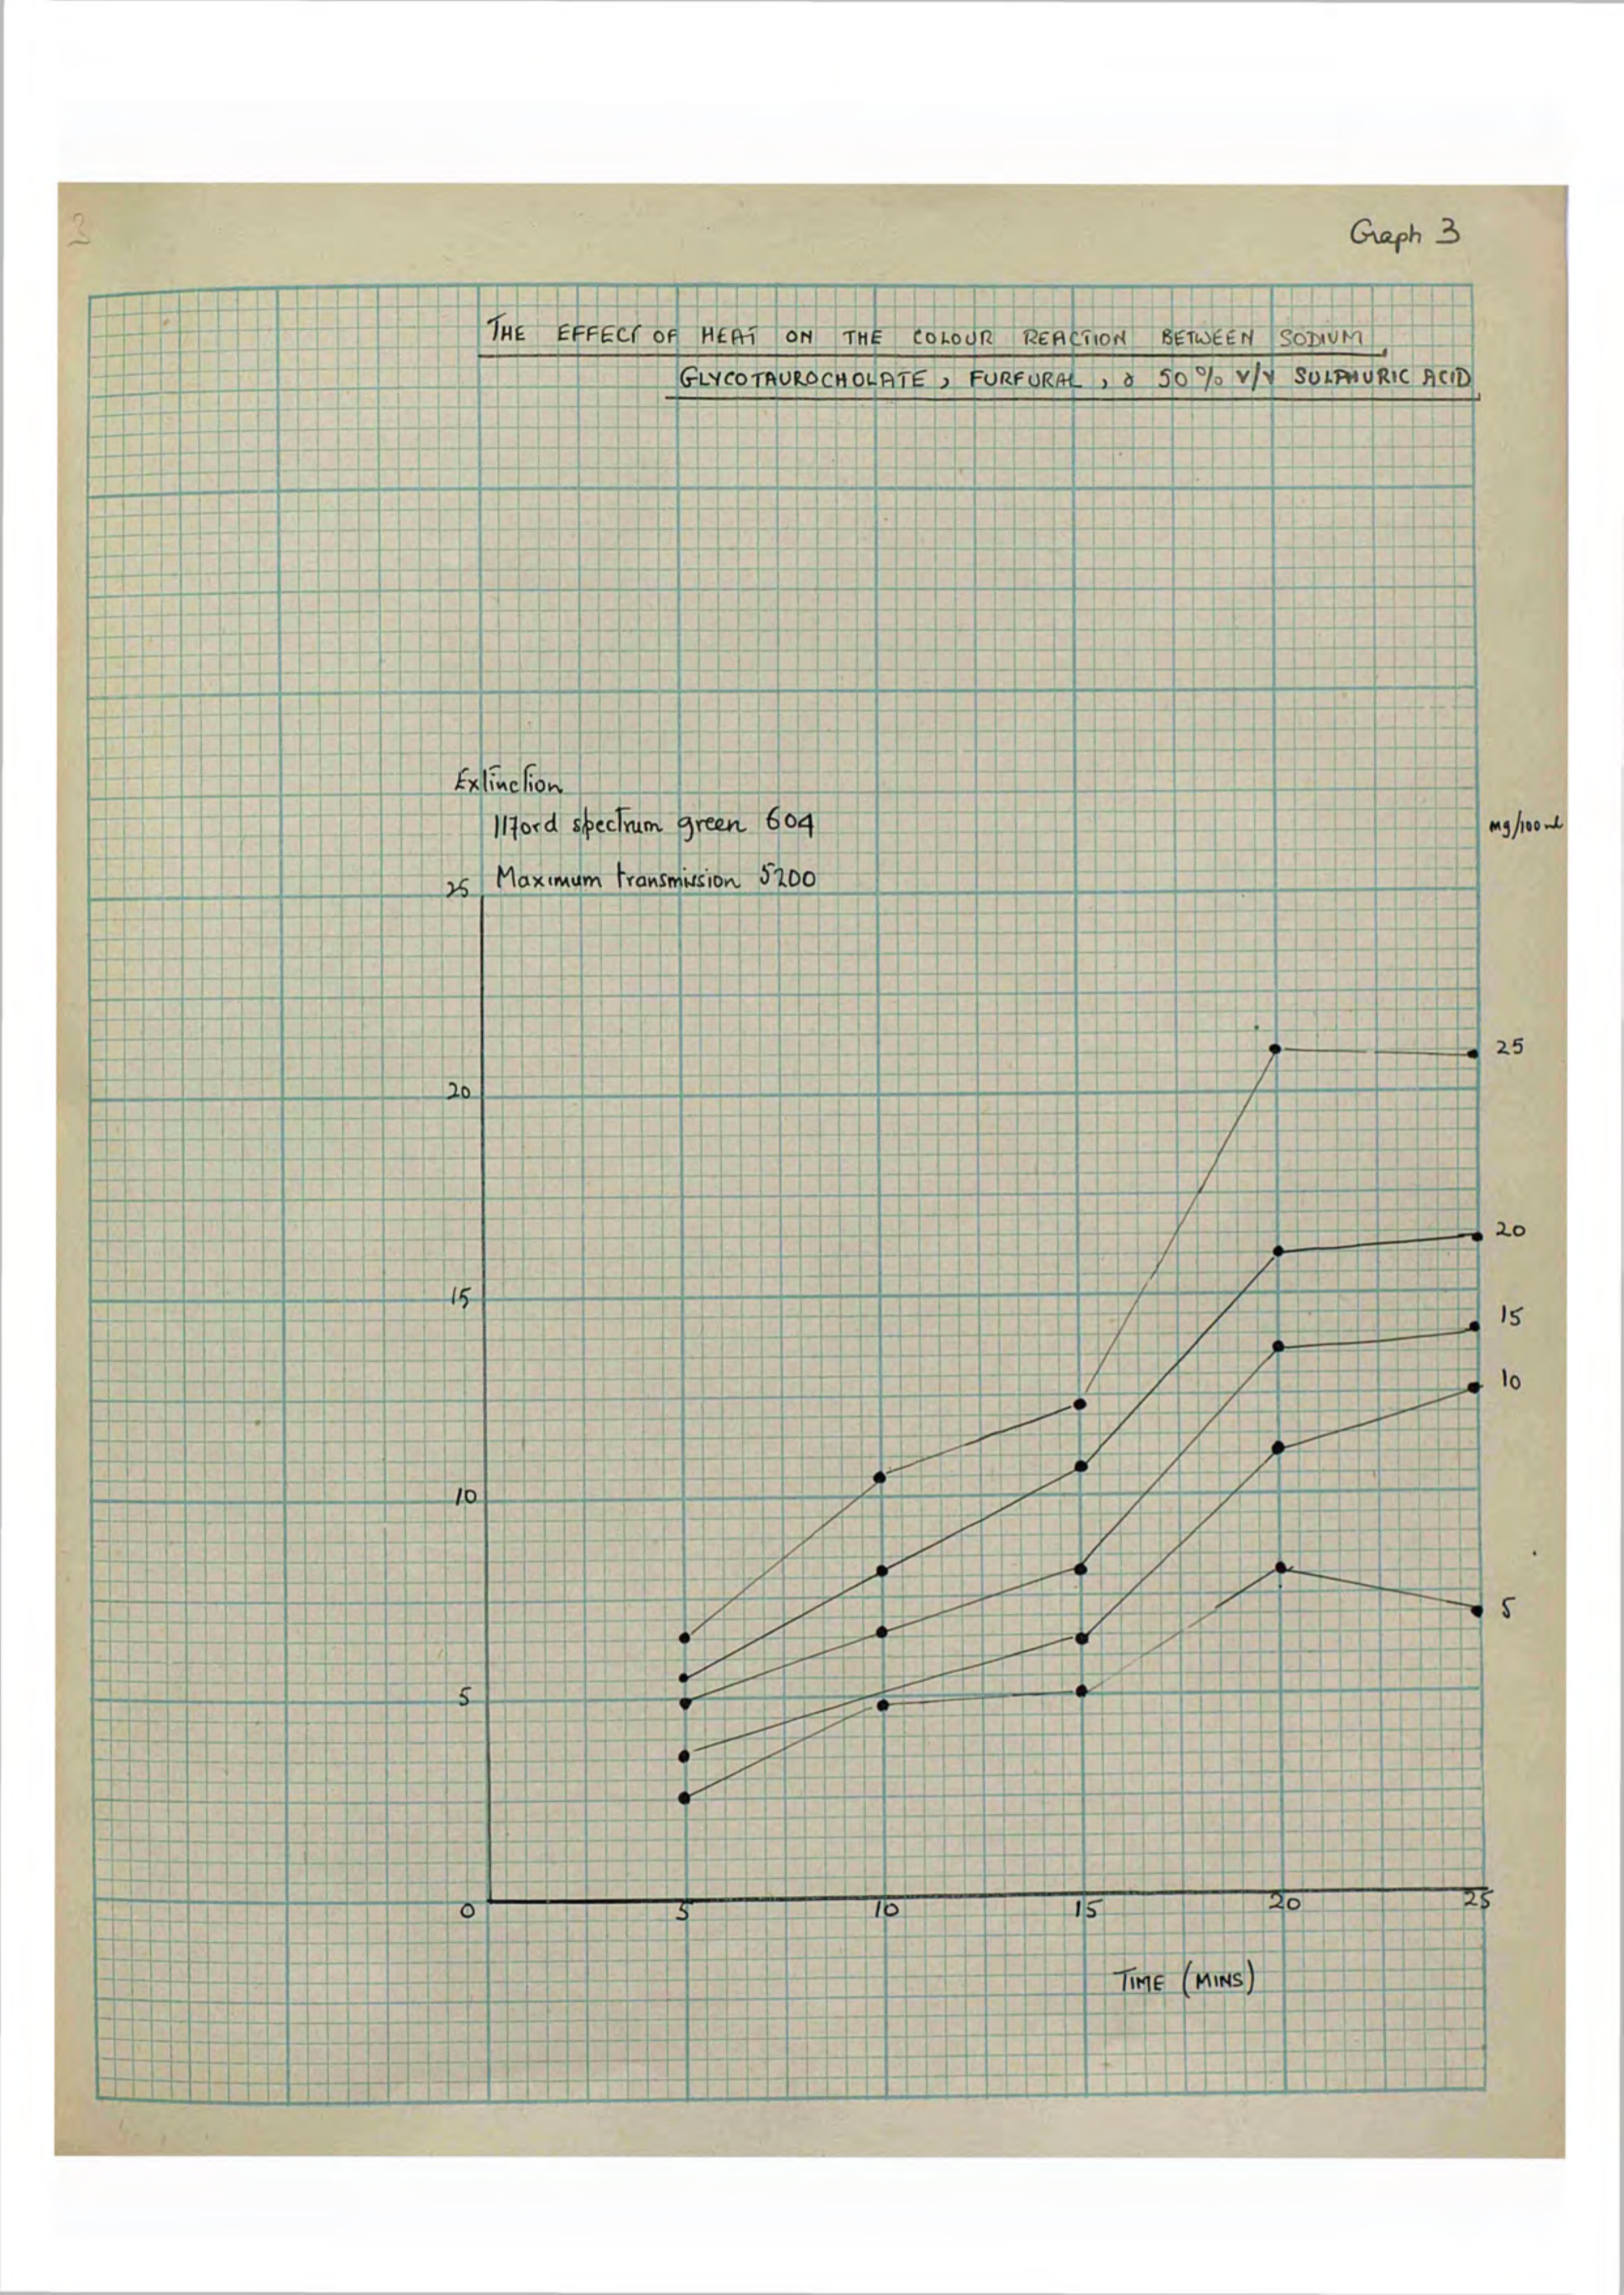 3
Graph 3
THE EFFECT OF HEAT ON THE COLOUR REACTION BETWEEN SODIUM
GLYCOTAUROCHOLATE, FURFURAL, & 50% V/V SULPHURIC ACID
Extinction
Ilford spectrum green 604
mg/100ml
Maximum transmission 5200
25
25
20
20
15
15
10
10
5
5
0
5
10
15
20
25
TIME (MINS)